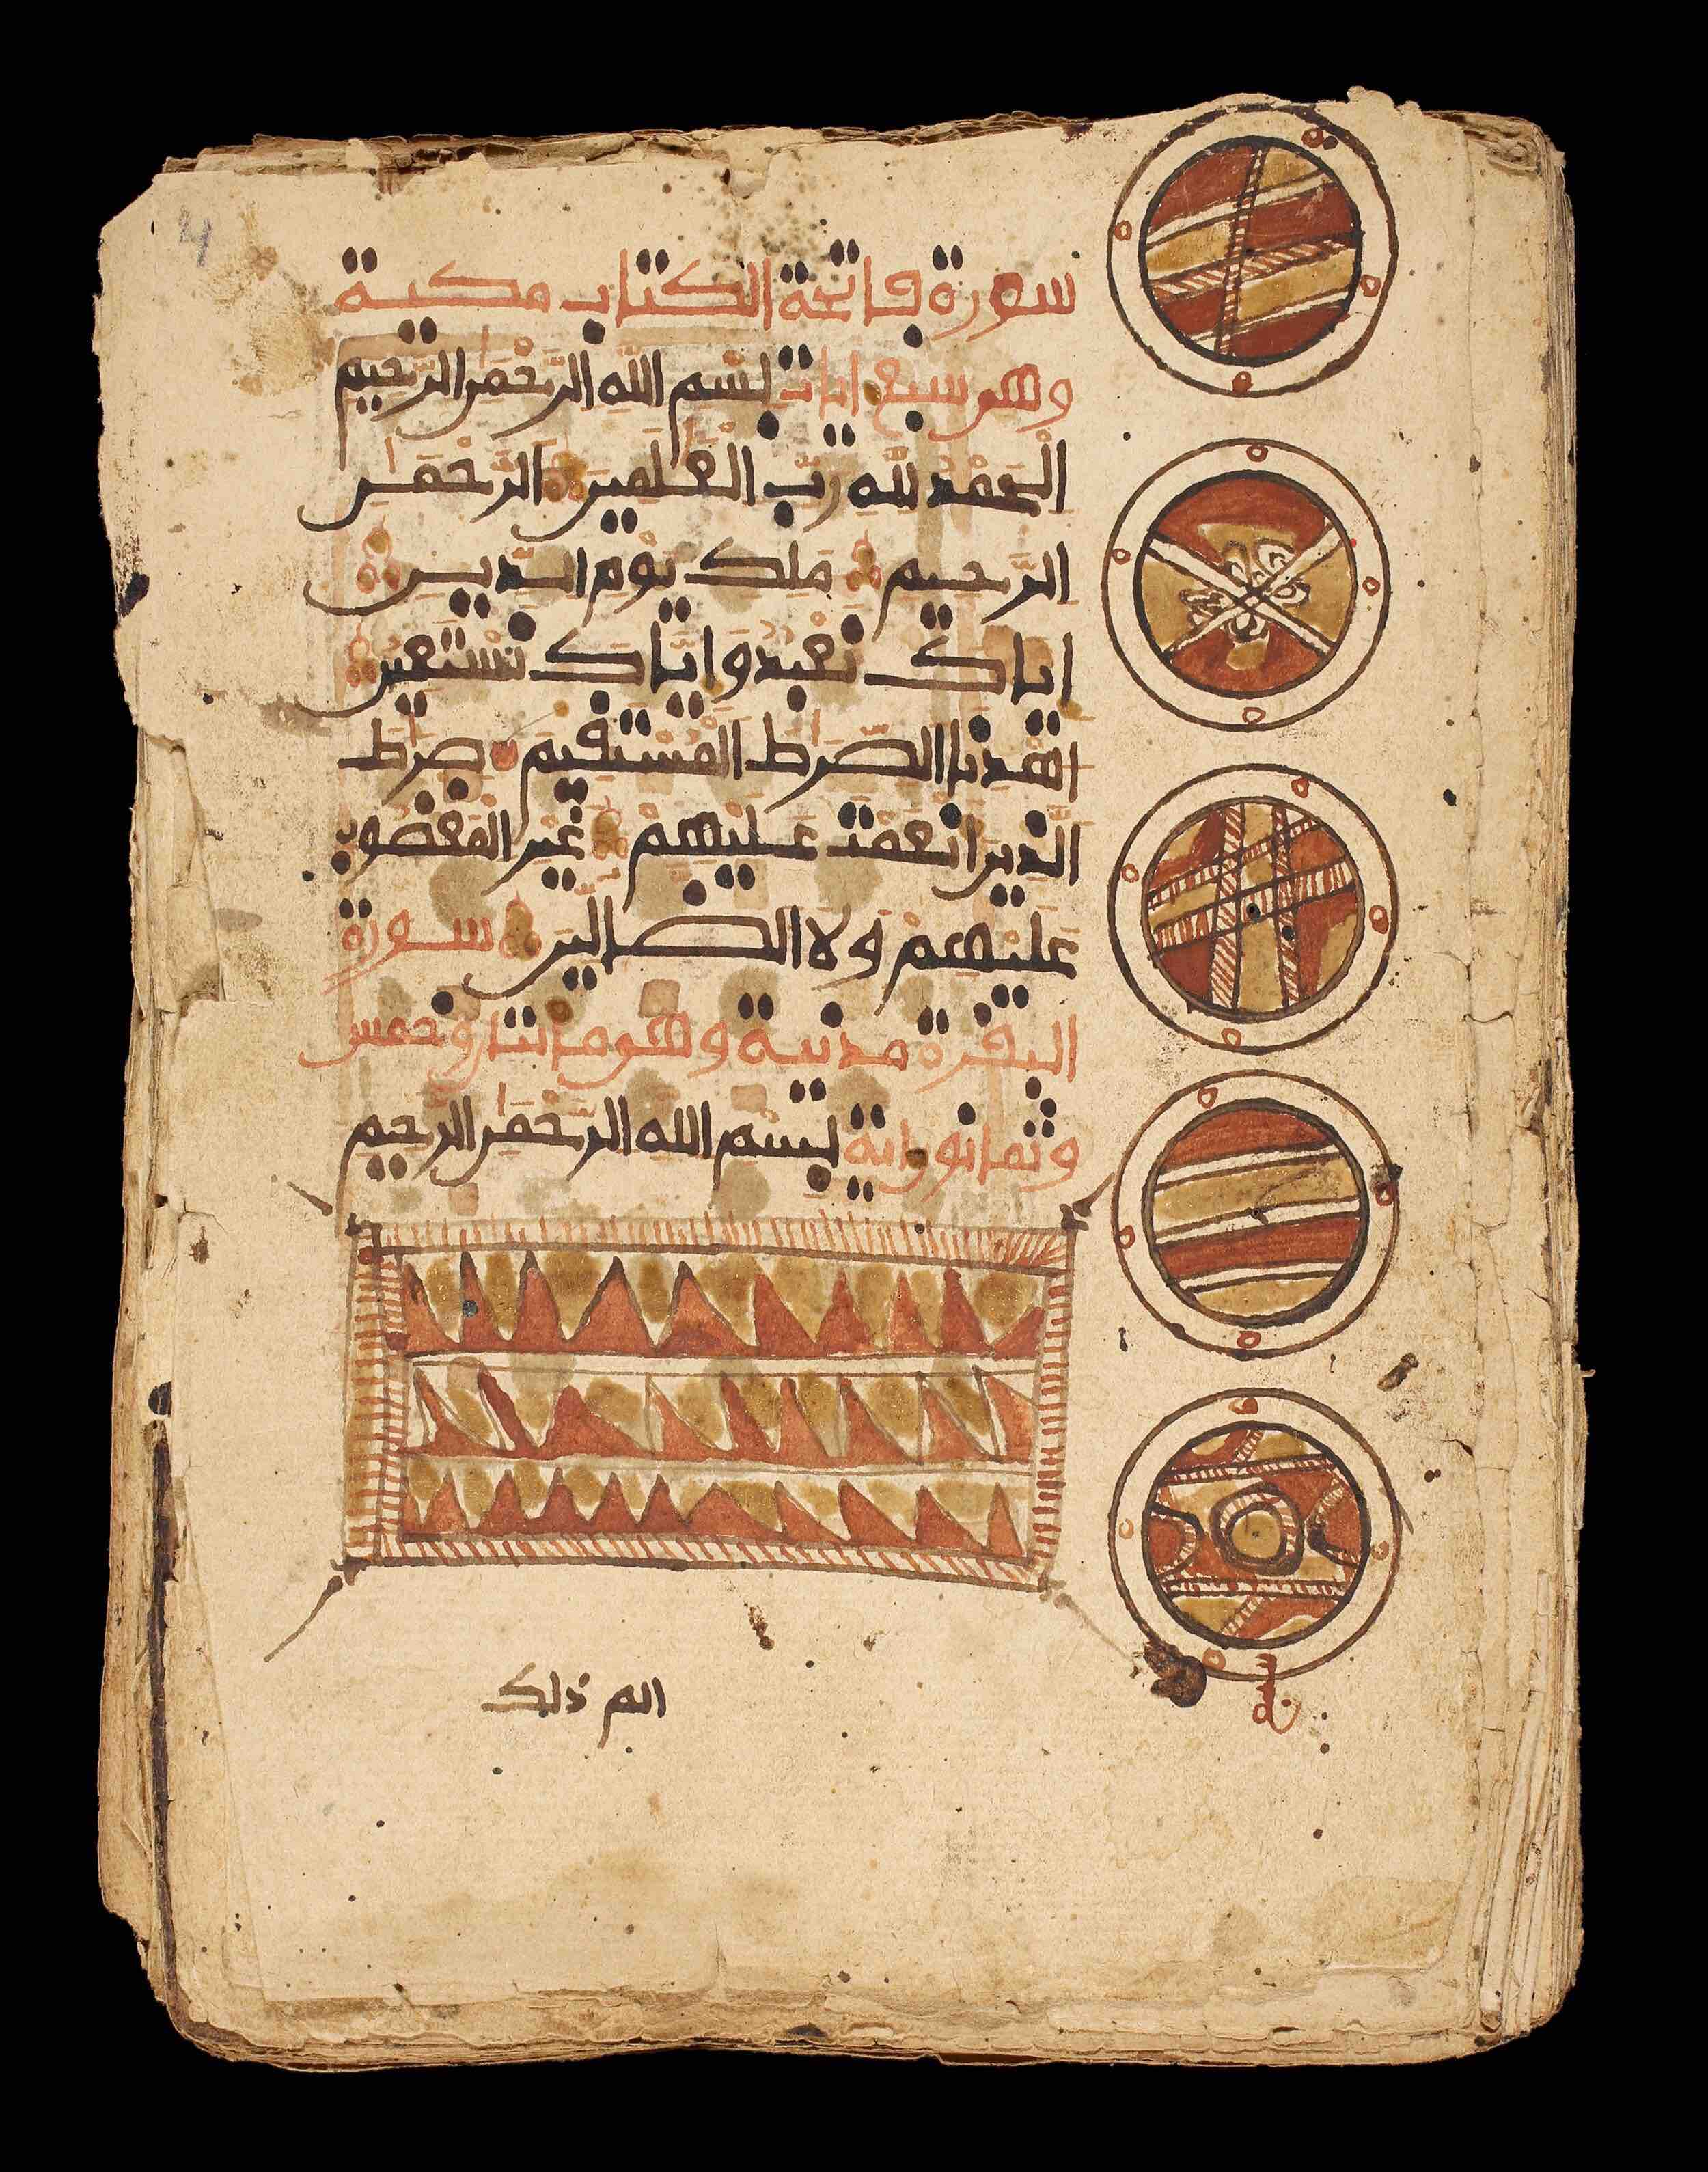 سورة فاتحة الكتاب مكية
وهو سبع ايات بِسْمِ اللهِ الرَّحْمَنِ الرَّحِيمِ
الْحَمْدُ لِلَّهِ رَبِّ الْعَلَمِينَ الرَّحْمَنِ
الرَّحِيمِ مَلِكِ يَوْمِ الدِّينِ
اِيَّاكَ نَعْبُدُ وَاِيَّاكَ نَسْتَعِينُ
اهْدِنَا الصِّرَاطَ الْمُسْتَقِيمَ صِرَاطَ
الَّذِينَ اَنْعَمْتَ عَلَيْهِمْ غَيْرِ الْمَغْضُوبِ
عَلَيْهِمْ وَلَا الضَّالِّينَ سورة
البقرة مدنية وهو مائتان وخمس
وثمانون اية بِسْمِ اللهِ الرَّحْمَنِ الرَّحِيمِ
الم ذلك